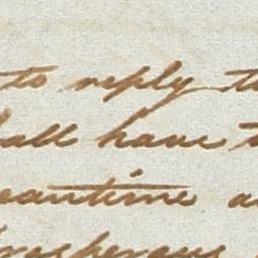 to reply to
hall have t
eantime a
prosperous